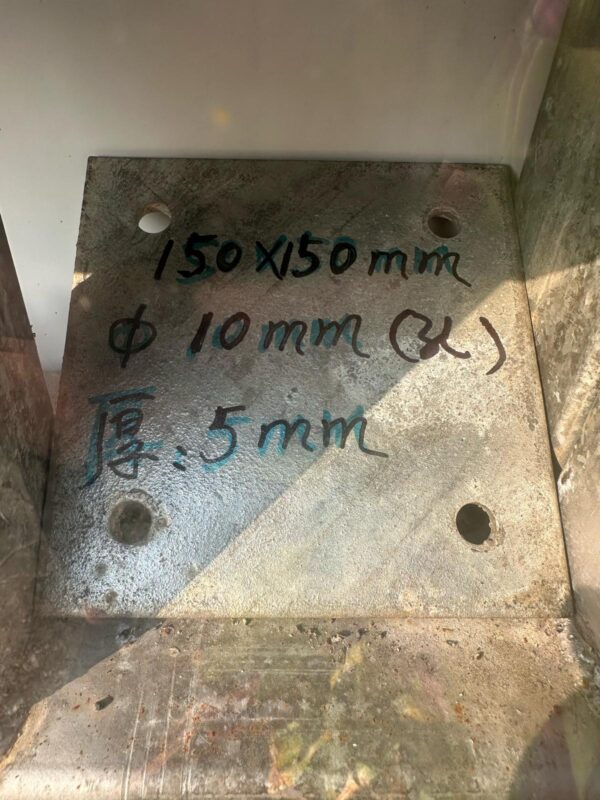 150X150mm
ϕ 10mm (孔)
厚:5mm